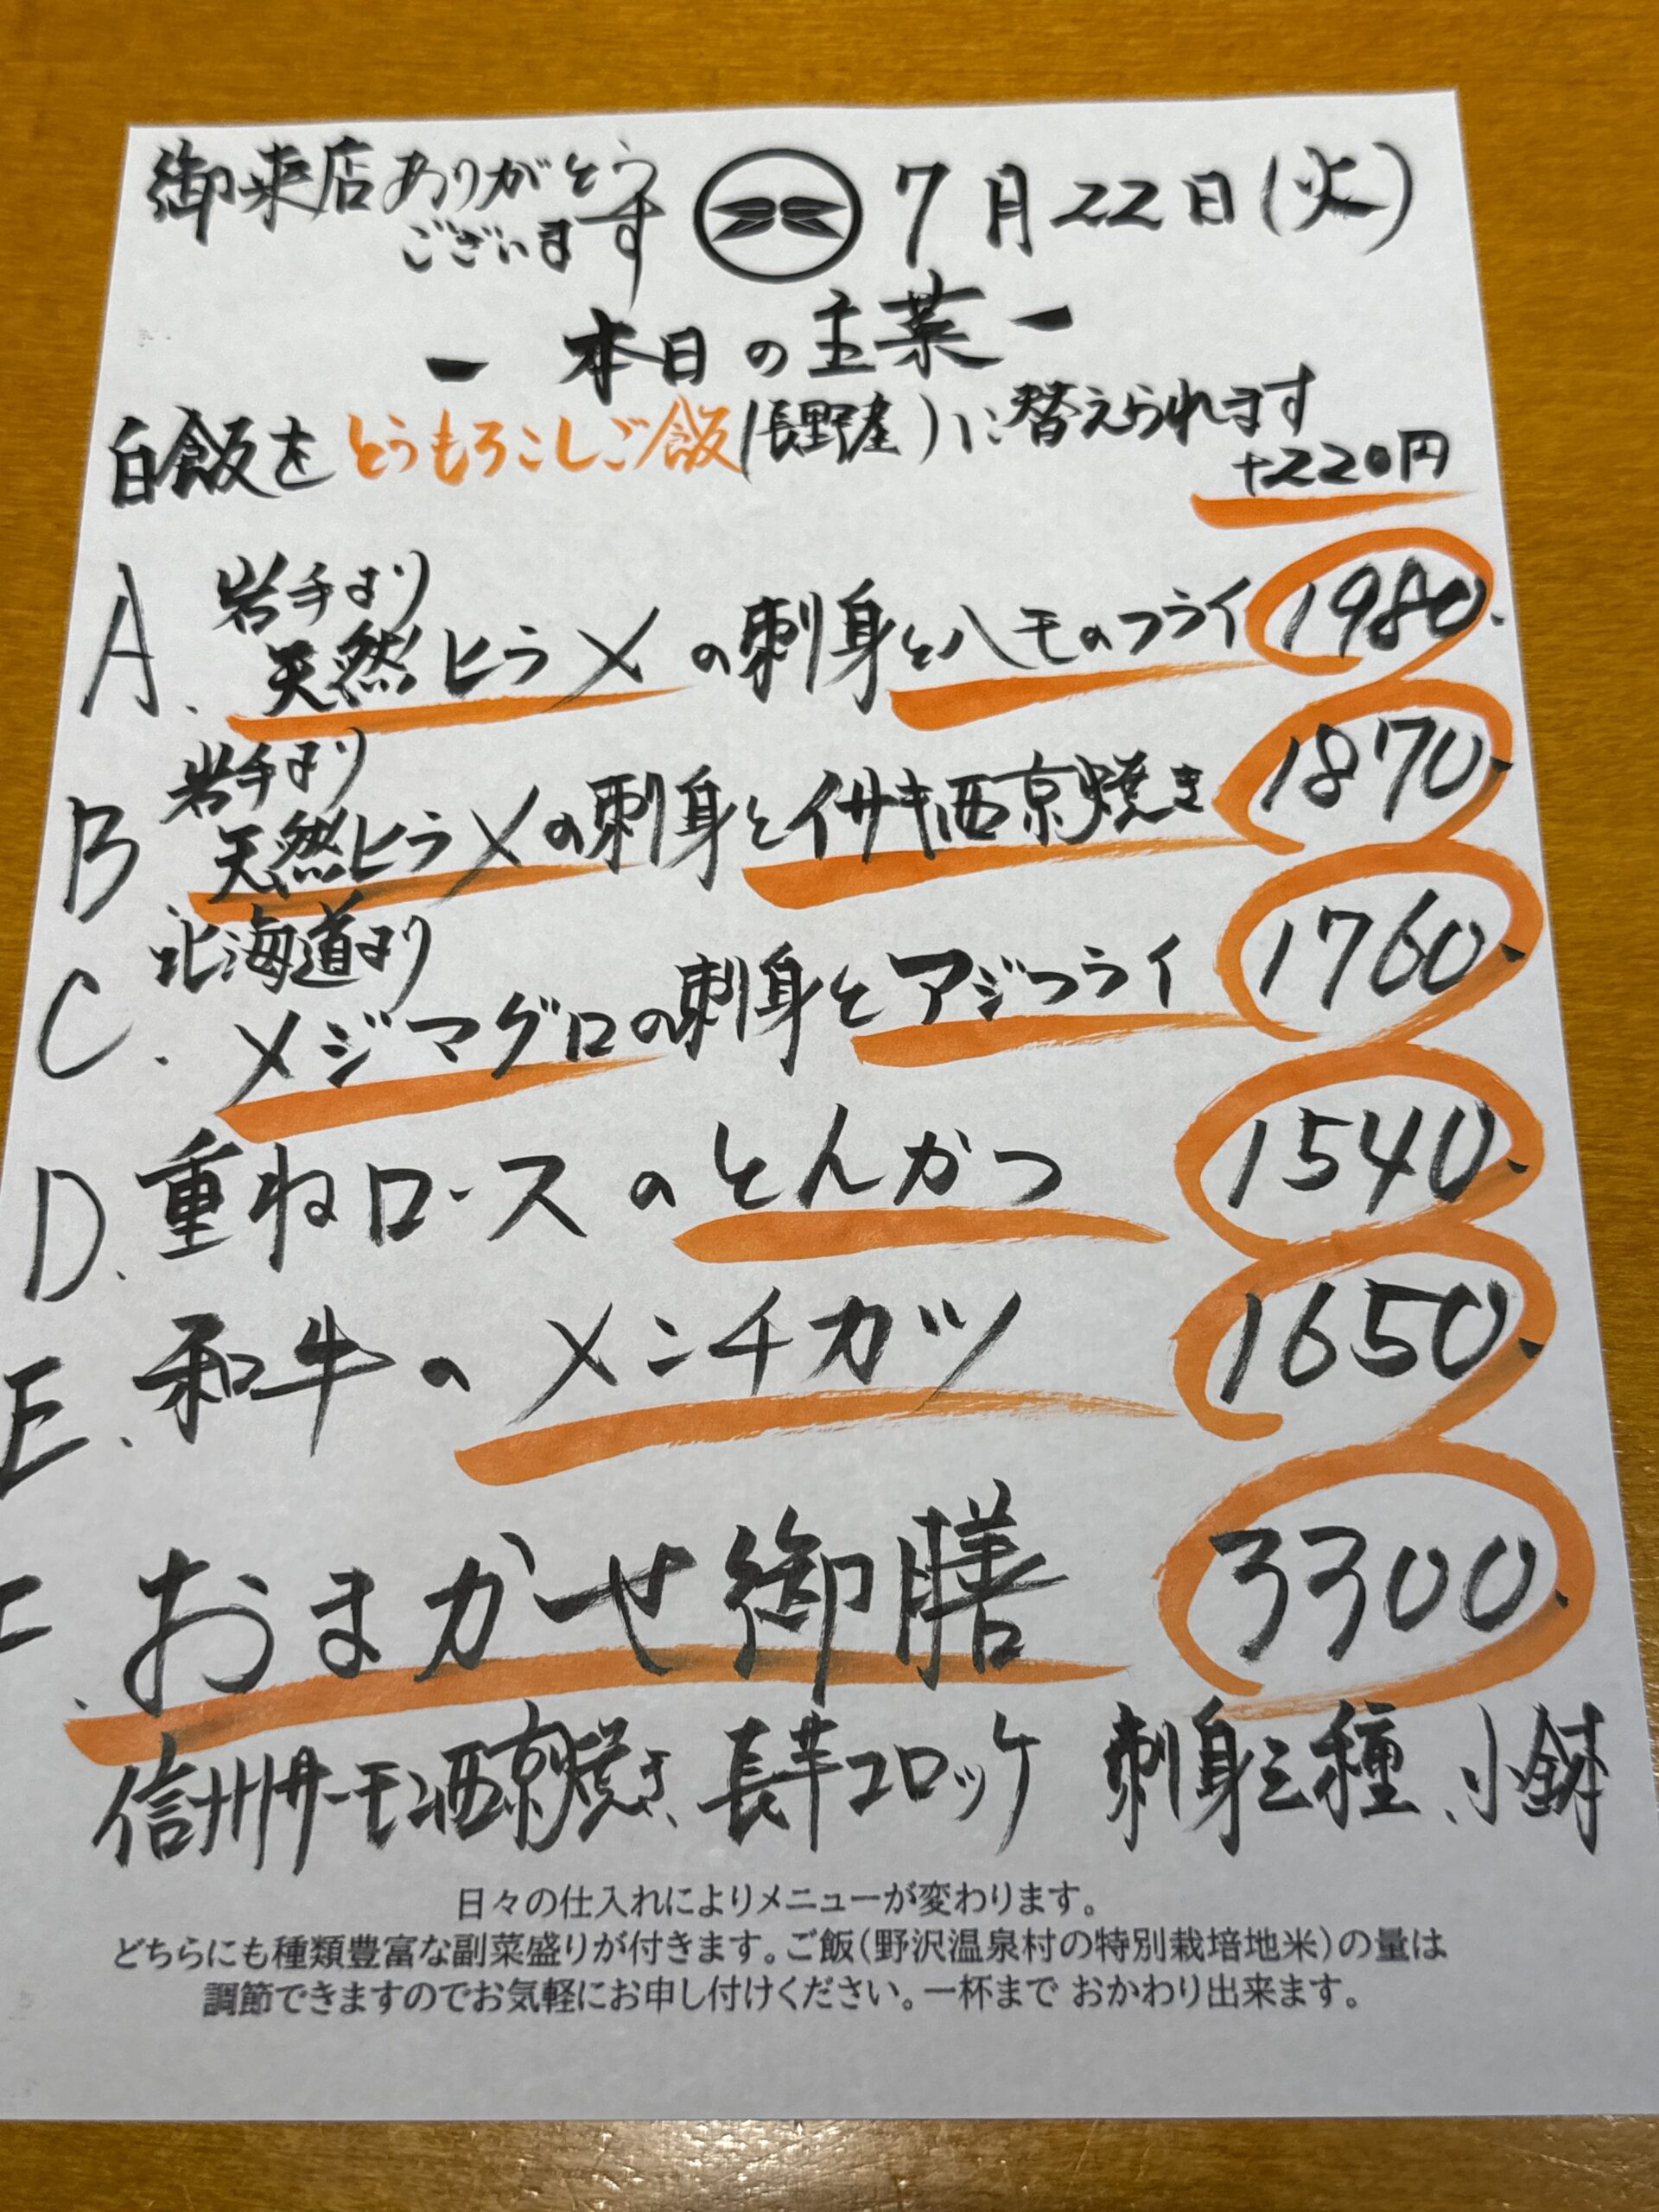 御来店ありがとう
ございます
7月22日(火)
ー本日の主菜ー
白飯をとうもろこしご飯(長野産)に替えられます
+220円
岩手より
A. 天然ヒラメの刺身とハモのフライ 1980.
岩手より
B 天然ヒラメの刺身とイサキ西京焼き 1870.
北海道より
C. メジマグロの刺身とアジフライ 1760.
D. 重ねロースのとんかつ 1540.
E. 和牛のメンチカツ 1650.
おまかせ御膳 3300.
信州サーモン西京焼き、長芋コロッケ 刺身三種、小鉢
日々の仕入れによりメニューが変わります。
どちらにも種類豊富な副菜盛りが付きます。ご飯(野沢温泉村の特別栽培地米)の量は
調節できますのでお気軽にお申し付けください。一杯まで おかわり出来ます。